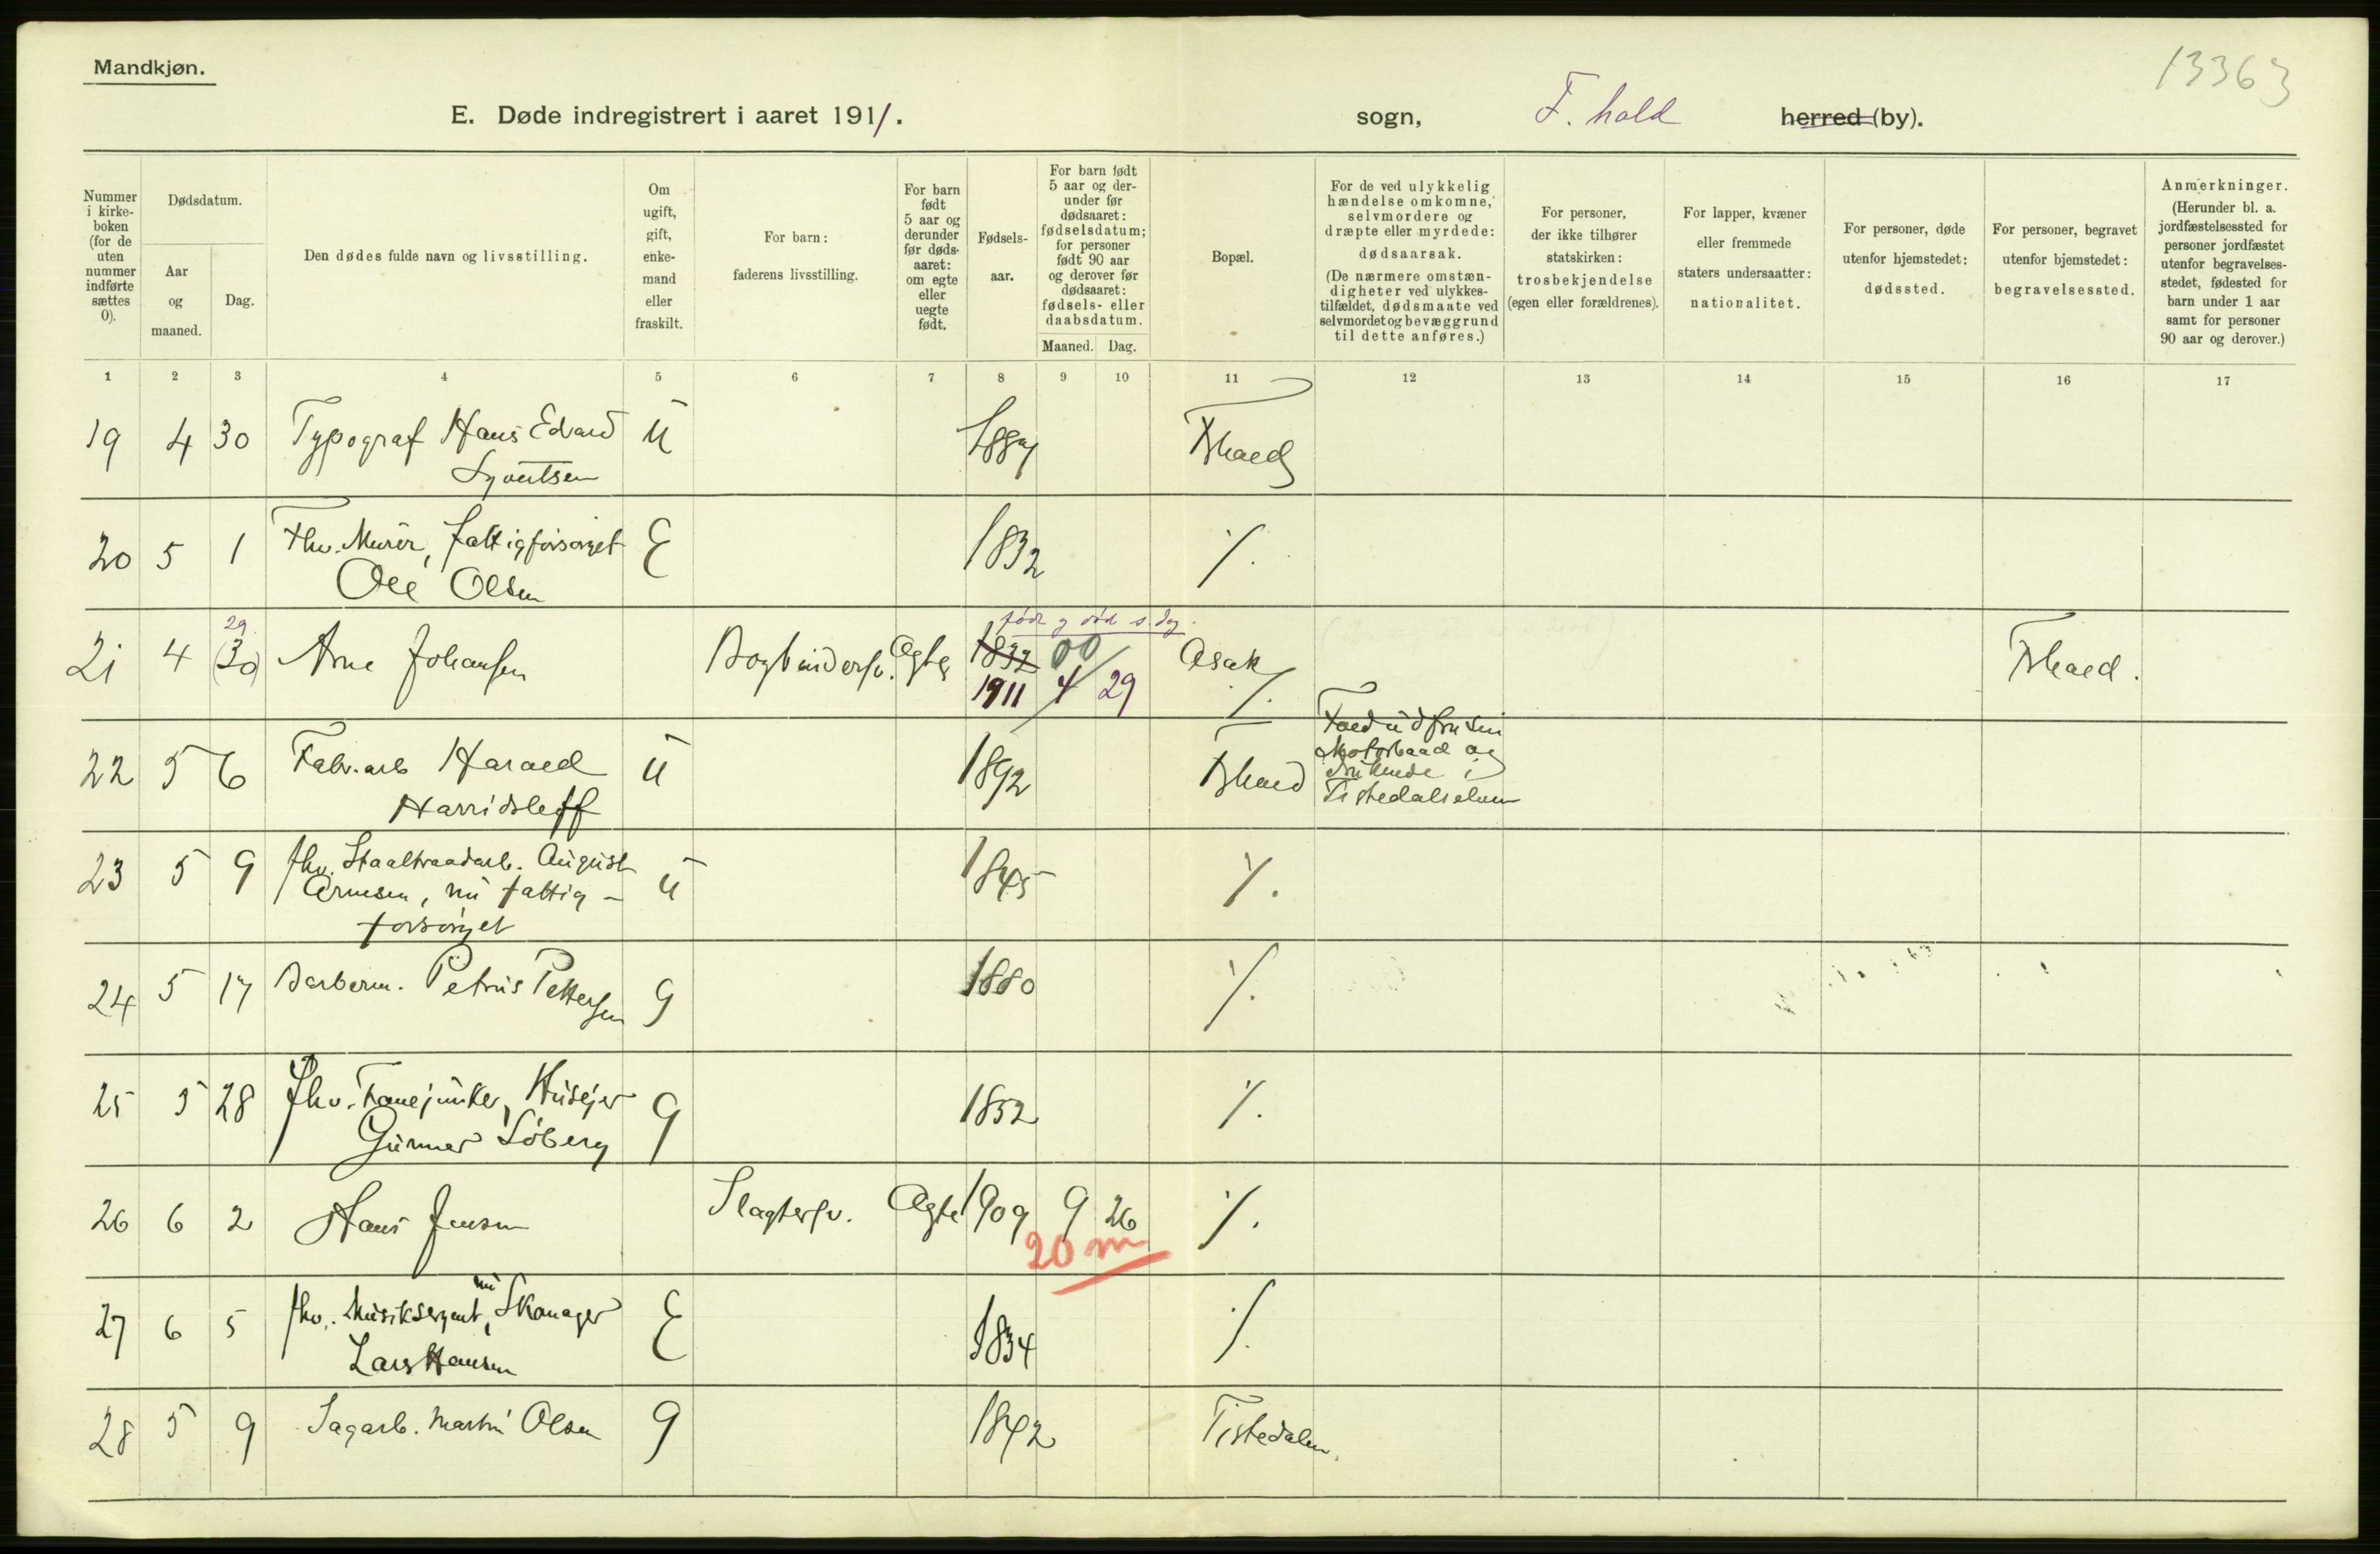 Mandkjøn.
13363
E. Døde indregistrert i aaret 1911. sogn, F. hald herred (by).
Nummer i kirkeboken (for de uten nummer indførte sættes 0).
Dødsdatum.
Aar og maaned.
Dag.
Den dødes fulde navn og livsstilling.
Om ugift, gift, enkemand eller fraskilt.
For barn: faderens livsstilling.
For barn født 5 aar og derunder før dødsaaret: om egte eller uegte født.
Fødselsaar.
For barn født 5 aar og derunder før dødsaaret: fødselsdatum; for personer født 90 aar og derover før dødsaaret: fødsels- eller daabsdatum.
Maaned. Dag.
Bopæl.
For de ved ulykkelig hændelse omkomne, selvmordere og dræpte eller myrdede: dødsaarsak.
(De nærmere omstændigheter ved ulykkestilfældet, dødsmaate ved selvmordet og bevæggrund til dette anføres.)
For personer, der ikke tilhører statskirken: trosbekjendelse (egen eller forældrenes).
For lapper, kvæner eller fremmede staters undersaatter: nationalitet.
For personer, døde utenfor hjemstedet: dødssted.
For personer, begravet utenfor hjemstedet: begravelsessted.
Anmerkninger.
(Herunder bl. a. jordfæstelsessted for personer jordfæstet utenfor begravelsesstedet, fødested for barn under 1 aar samt for personer 90 aar og derover.)
1 2 3 4 5 6 7 8 9 10 11 12 13 14 15 16 17
19 4 30 Typograf Hans Edvard U 1887 Fhald
Syvertsen
20 5 1 Fhv. Murer, fattigforsørget E 1832 ⁒
Ole Olsen
29 født og død s. dag.
21 4 (30) Arne Johansen Bogbindersv. Ægte 1832 00 Asak Fhald.
1911 4 29 ⁒
22 5 6 Fabr. arb Harald U 1892 Fhald
Harridsleff
Fald ud fra sin
Motorbaad og
druknede i
Tistedalselven
23 5 9 fhv. Staaltraadarb. August U 1845 ⁒
Arnesen, nu fattig-
forsørget
24 5 17 Barberm. Petrus Pettersen G 1880 ⁒
25 5 28 fhv. Fanejunker, Huseier G 1852 ⁒
Gunner Löberg
26 6 2 Hans Jensen Slagtersv. Ægte 1909 9 26 ⁒
20 m
27 6 5 fhv. Musiksergent, nu Skomager E 1834 ⁒
Lars Hansen
28 5 9 Sagarb. Martin Olsen G 1842 Tistedalen.